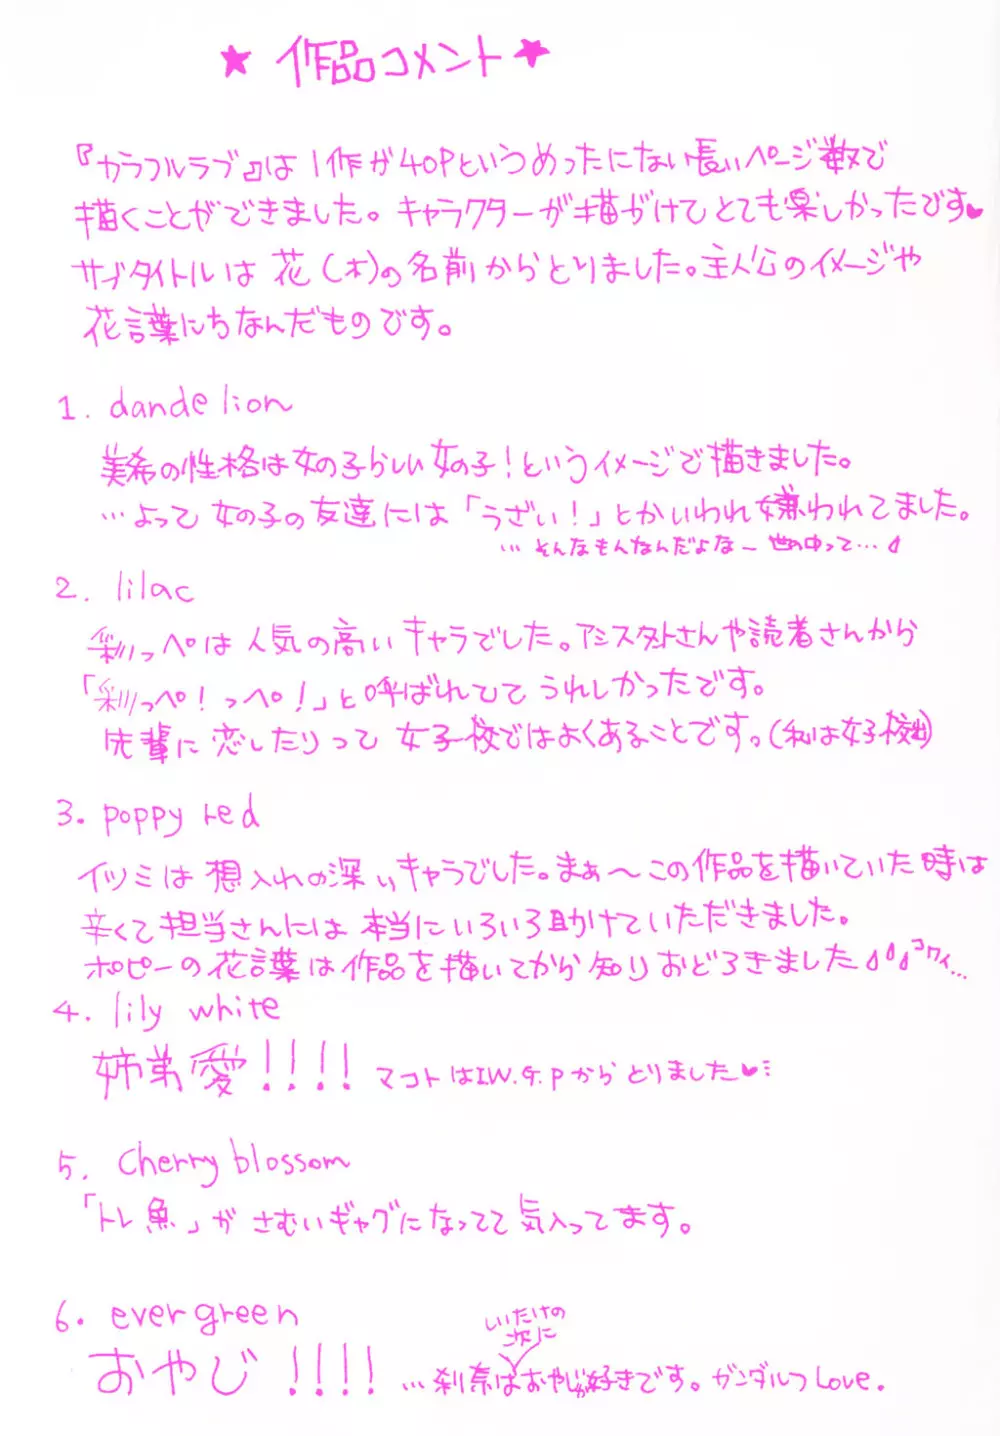 ★ 作品コメント ★
『カラフルラブ』は1作が40Pというめったにない長いページ数で
描くことができました。キャラクターが描かけてとても楽しかったです♥
サブタイトルは花(木)の名前からとりました。主人公のイメージや
花言葉にちなんだものです。
1. dandelion
美希の性格は女の子らしい女の子!というイメージで描きました。
…よって女の子の友達には「うざい!」とかいわれ嫌われてました。
…そんなもんなんだよなー 世の中って…
2. lilac
彩っぺは人気の高いキャラでした。アシスタントさんや読者さんから
「彩っぺ!っぺ!」と呼ばれてて うれしかったです。
先輩に恋したりって女子校ではよくあることです。(私は女子校出)
3. poppy red
イツミは想入れの深いキャラでした。まぁ〜この作品を描いていた時は
辛くて担当さんには本当にいろいろ助けていただきました。
ポピーの花言葉は作品を描いてから知りおどろきました コワイ…
4. lily white
姉弟愛!!!! マコトはI.W.G.Pからとりました♥
5. Cherry blossom
「トレ魚」がさむいギャグになってて気入ってます。
6. evergreen
おやじ!!!! …刹奈はおやじが好きです。ガンダルフLove.
しいたけの
次に